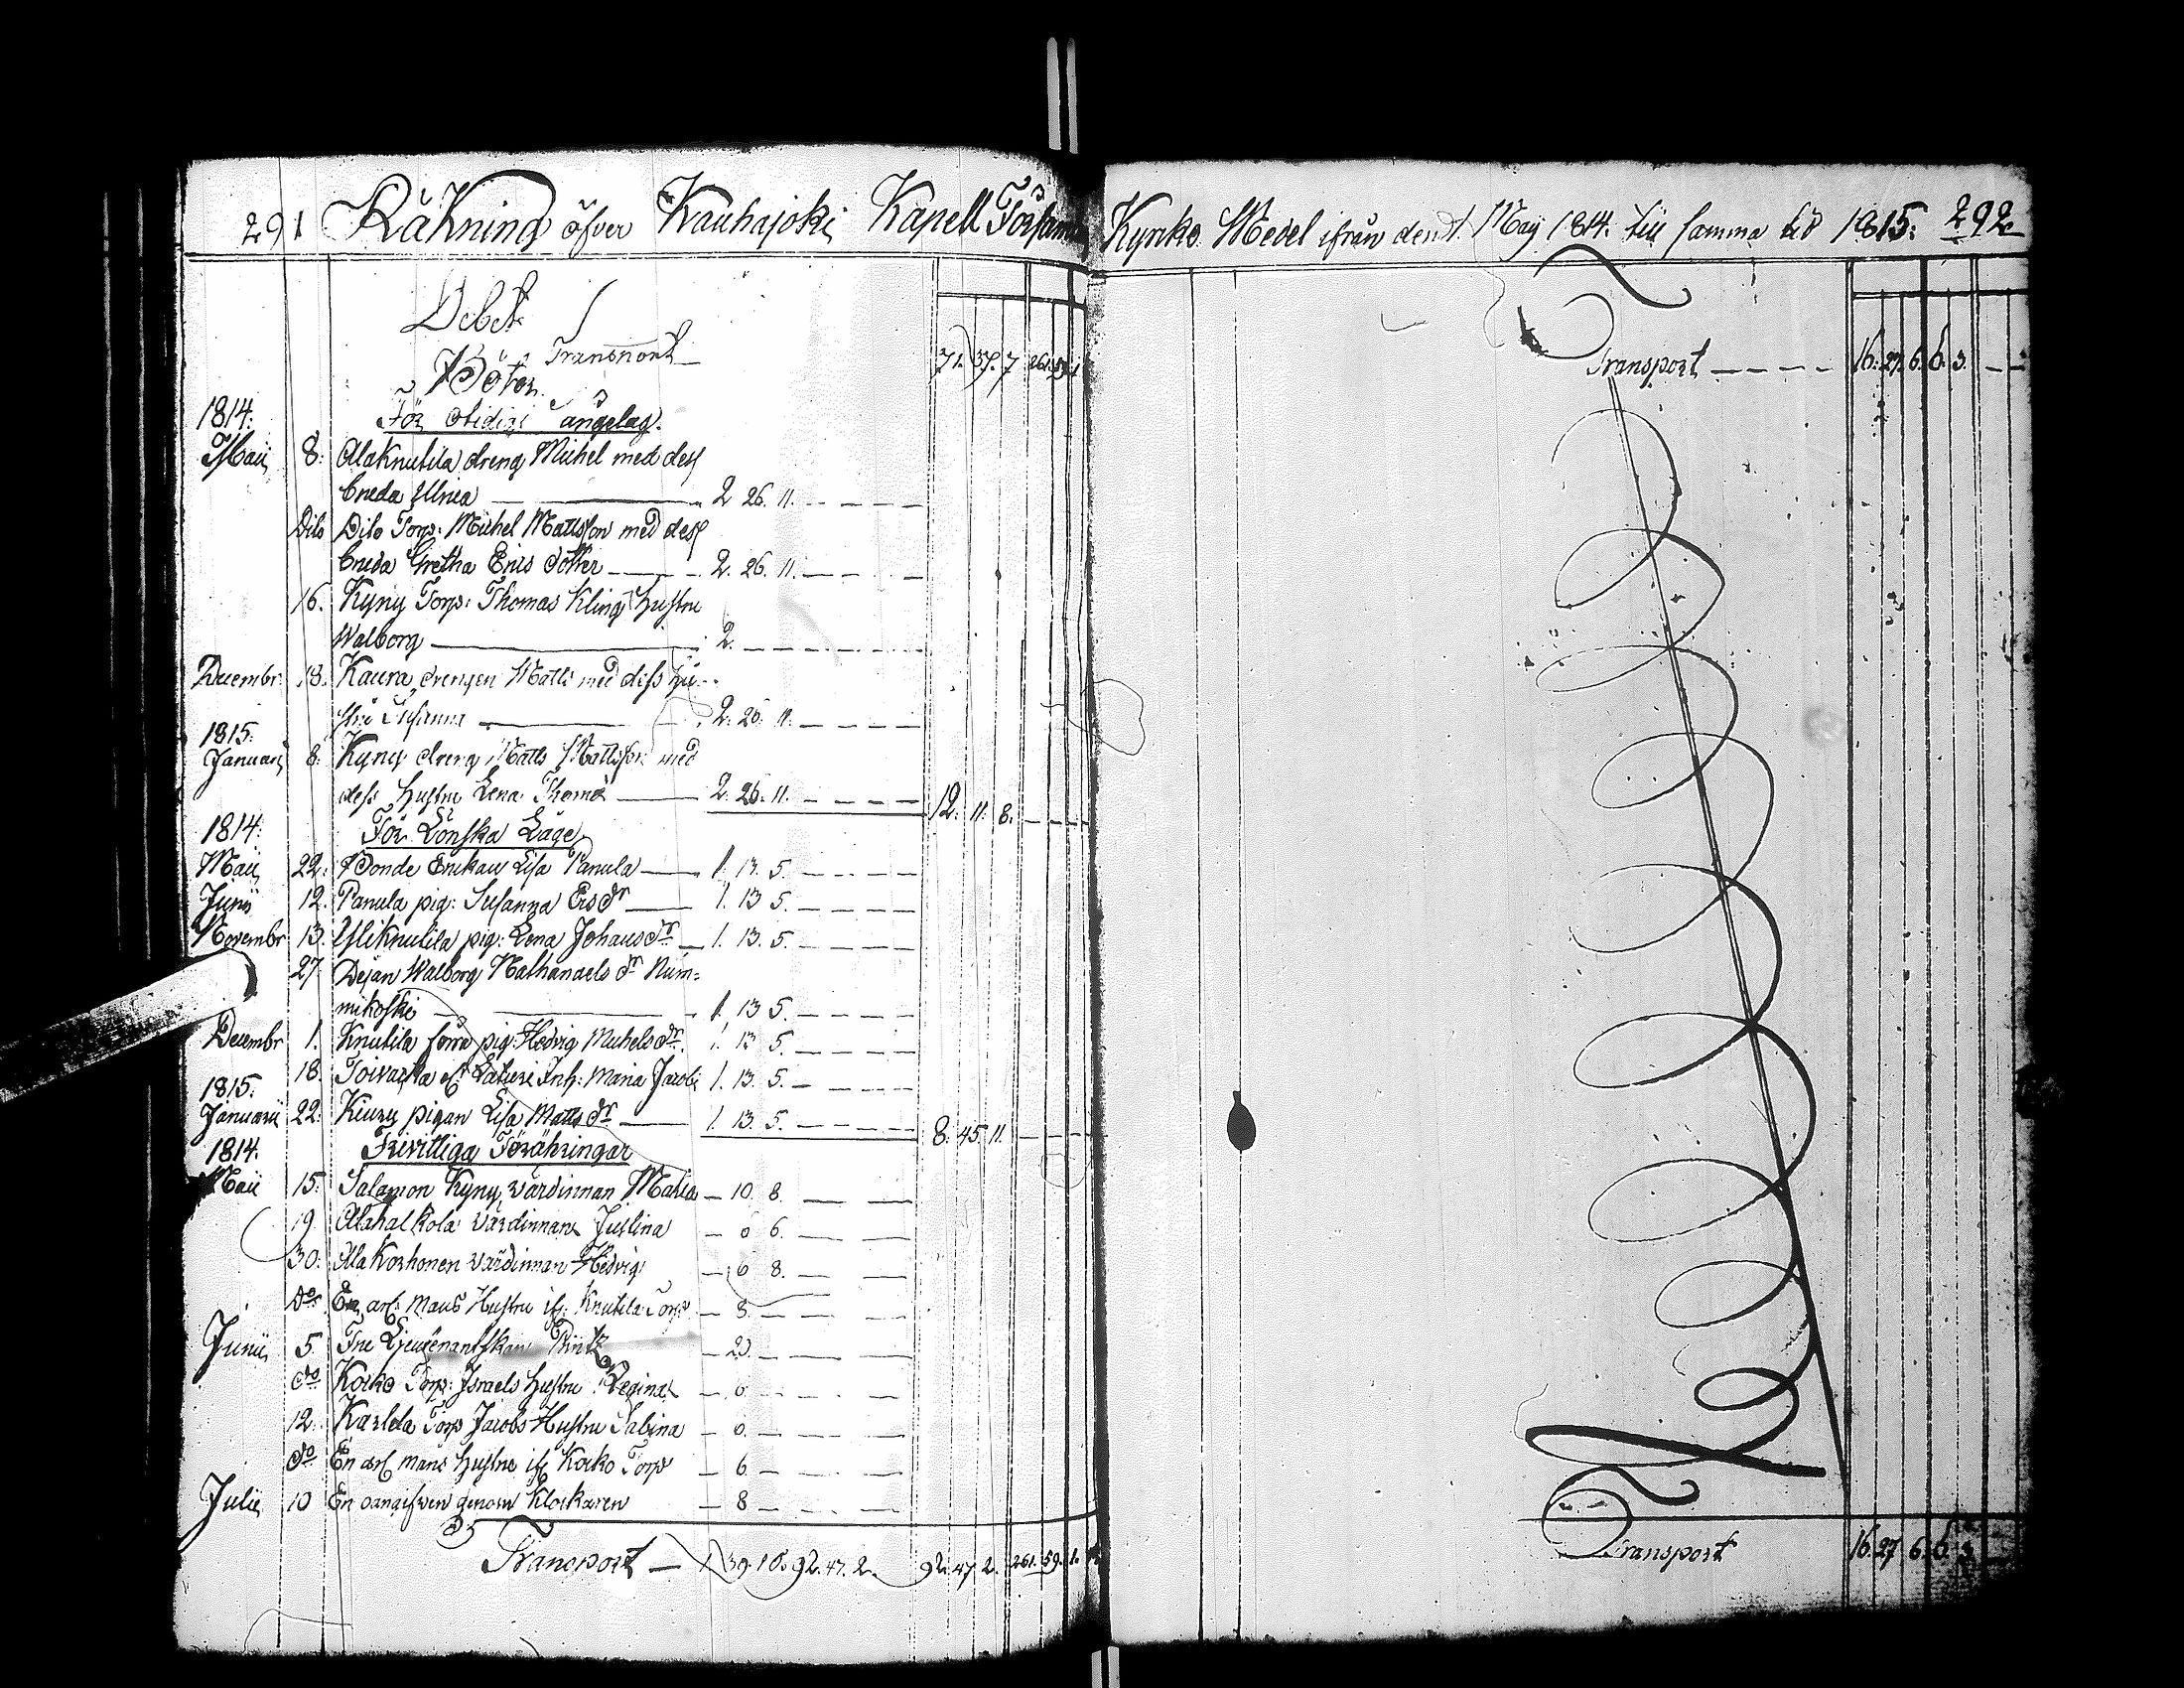 291 Räkning öfver Kauhajoki Kapell Försam
Debet
Transport — 71. 37. 7 261. 59. 1
Böter
För otidigt sängelag.
1814:
Maii 8: Alaknutila dreng Michel med dess
Creda Ulrica — 2 26. 11.
Dito Dito Torp: Michel Mattsson med dess
Creda Gretha Erics dotter — 2. 26. 11.
16. Kyny Torp: Thomas Klings Hustru
Walborg — 2.
Decembr. 18. Kaura drengen Matts med dess hu-
stru Susanna — 2. 26. 11.
1815:
Januarii 8. Kyny dreng Matts Mattsson med
dess Hustru Lena Thoms — 2. 26. 11. — 12. 11. 8.
1814: För Lönska Läge
Maii 22. Bonde Enckan Lisa Panula — 1. 13. 5.
Junii 12. Panula pig: Susanna Ersdr — 1. 13 5.
Novembr 13. Yliknutila pig: Lena Johansdr — 1. 13. 5.
27. Dejan Walborg Nathanaels dr Num=
mikoski — 1. 13 5.
Decembr 1. Knutila förra pig: Hedvig Michelsdr. 1. 13 5.
18. Inh: Maria Jacobs 1. 13. 5.
1815:
Januarii 22. Kiury pigan Lisa Matts dr — 1. 13. 5. 8. 45. 11.
1814. Frivilliga Föräringar
Maii 15. Salamon Kyny värdinnan Maria — 10. 8.
19. Alahalkola värdinnan Justina — 6 6.
30. Alakorhonen värdinnan Hedvig — 6 8.
Do En arb: mans Hustru ifr: Knutila Torp — 8.
Junii 5. Fru Lieutenantskan — 20.
do Koiko Torp: Israels Hustru Regina — 6.
12. Karlela Torp Jacobs Hustru Sabina — 6.
do En arb mans Hustru ifr Koiko Torp — 6.
Julii 10 En oangifwen genom Klockaren — 8
Transport — 1 39. 10. 92. 47. 2. 92. 47 2. 261. 59. 1.
Kyrko Medel ifrån den 1. Maij 1814. till samma tid 1815: 292
Transport — 16. 27. 6. 6. 3.
Transport 16. 27 6. 6. 3